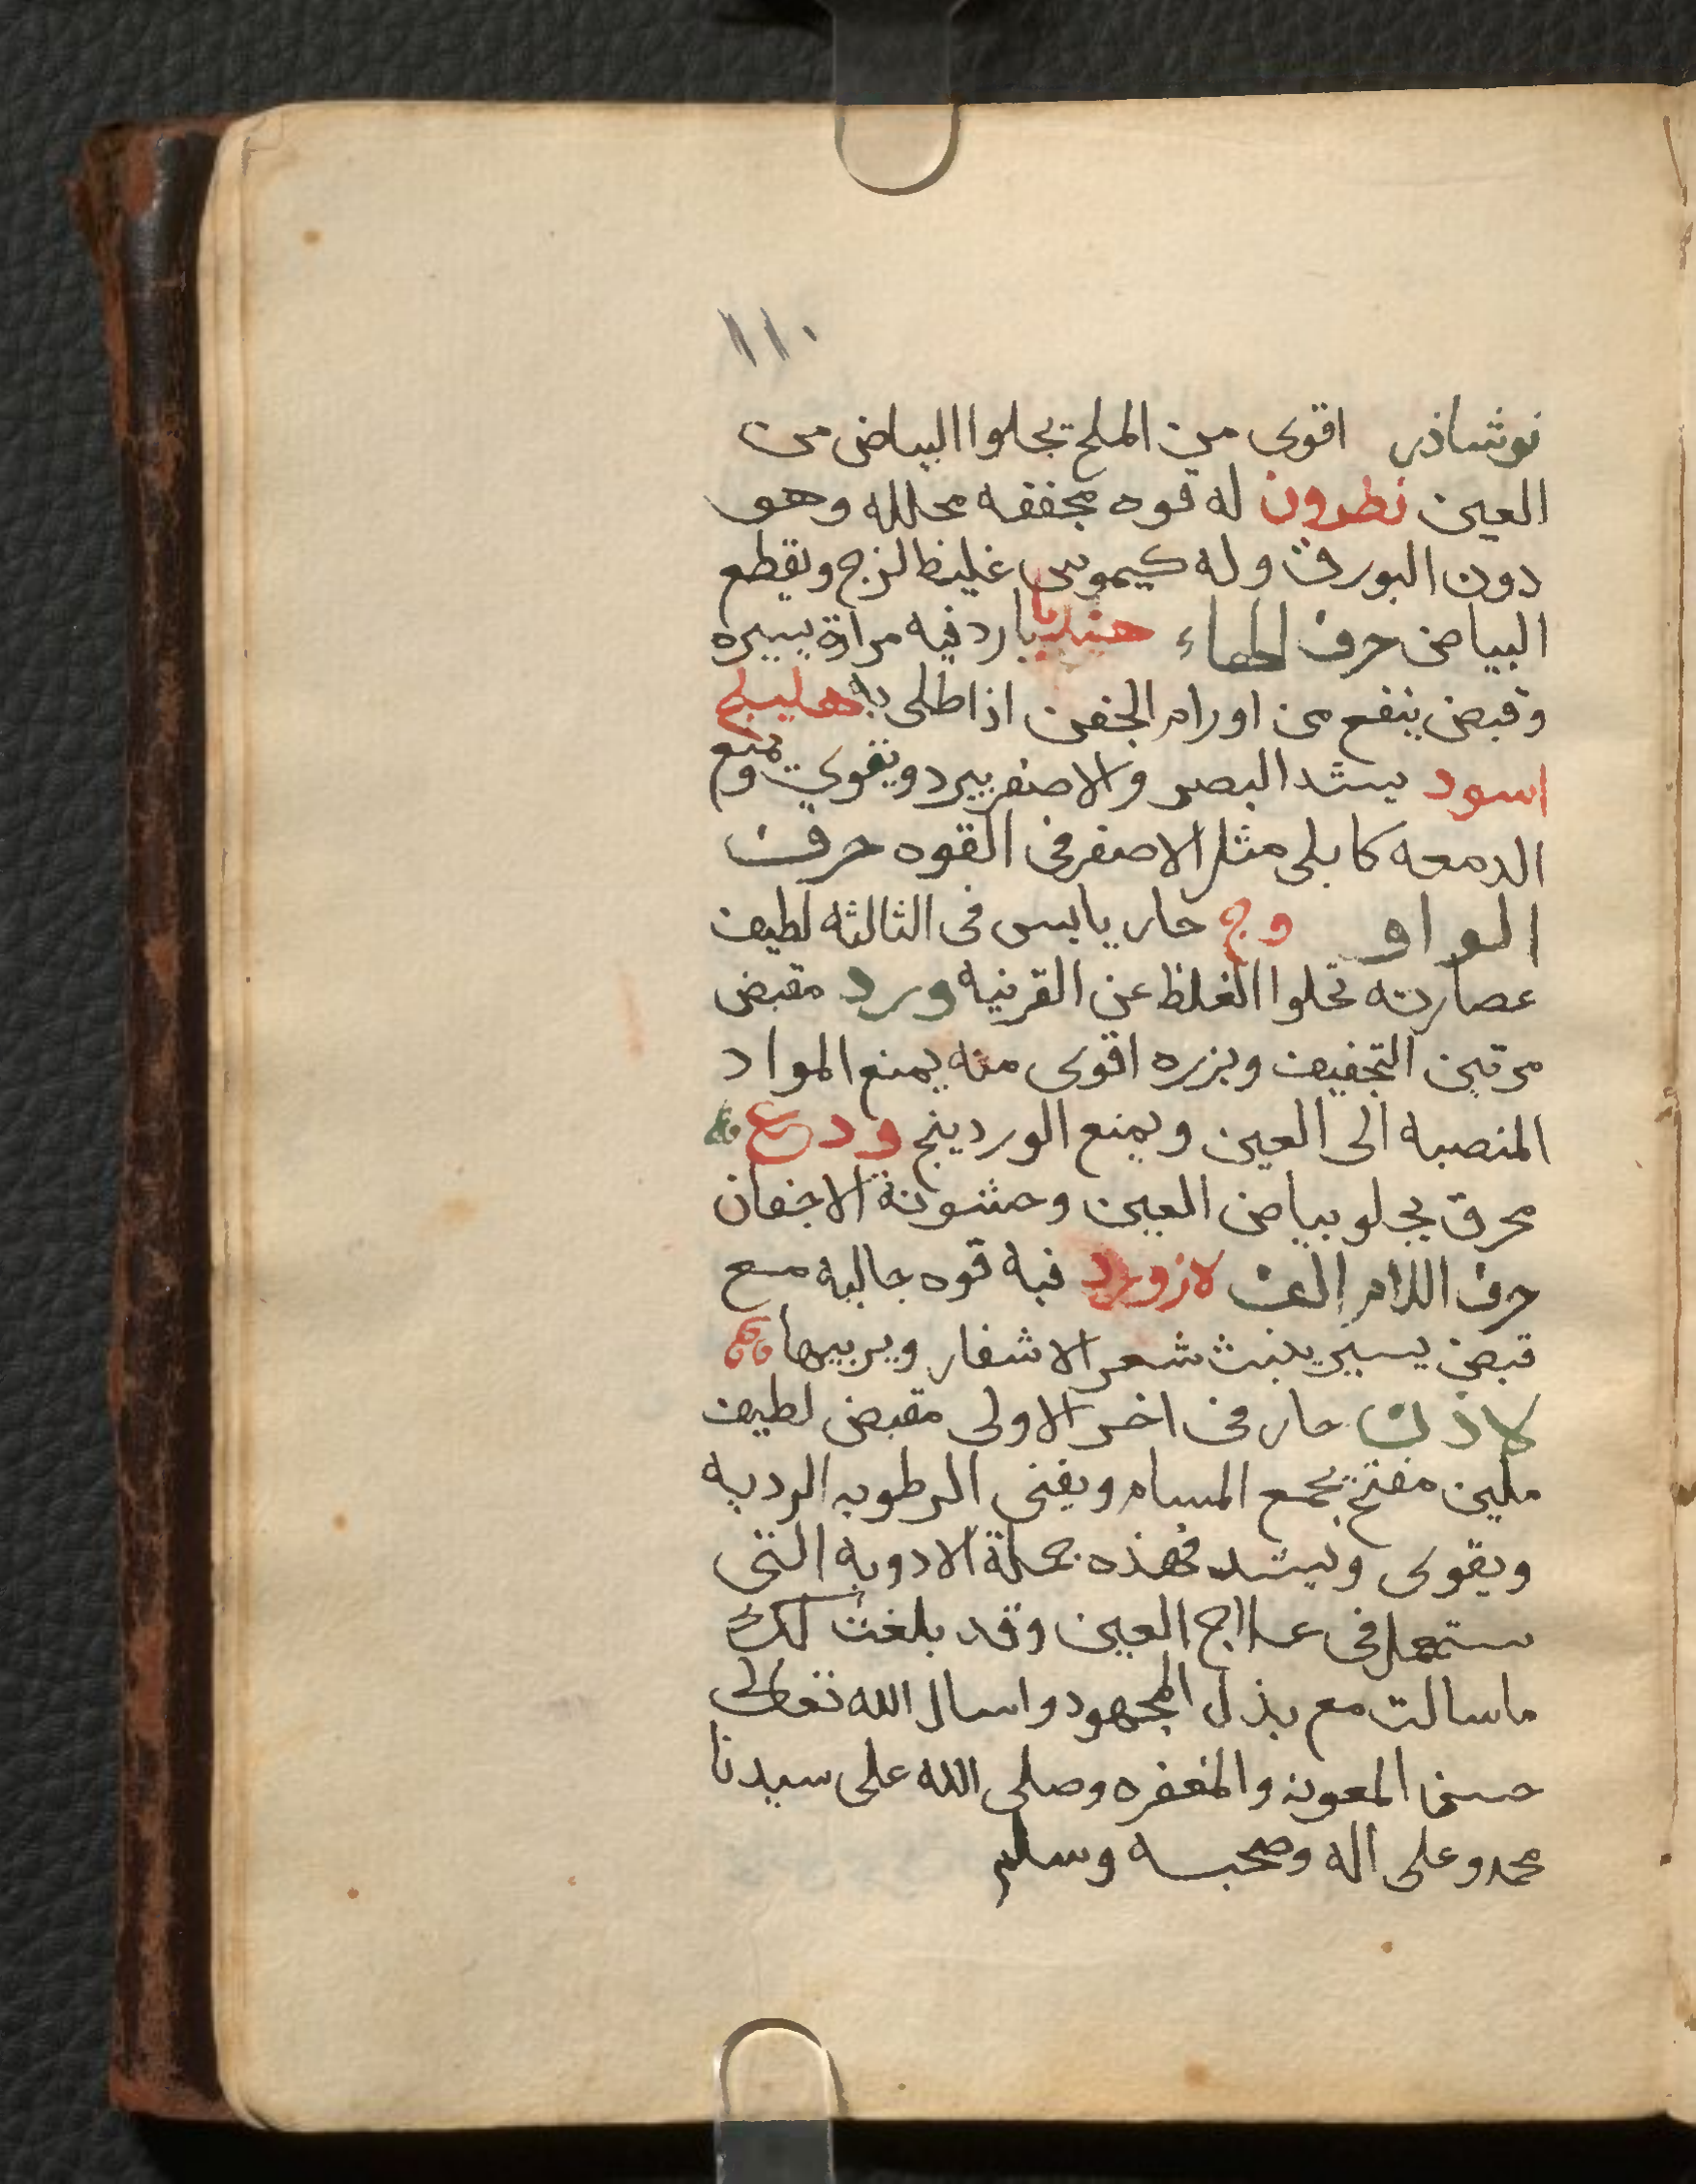 ١١٠
نوشاذر اقوى من الملح يجلوا البياض من
العين نطرون له قوه مجففه محلله وهو
دون البورق وله كيموس غليظ لزج ويقطع
البياض حرف الهاء هندبا بارد فيه مرارة يسيره
وقبض ينفع من اورام الجفن اذا طلى به هليلج
اسود يشد البصر والاصفر يبرد ويقوي ويمنع
الدمعه كابلى مثل الاصفر في القوه حرف
الواو وج حار يابس فى الثالثه لطيف
عصارته تجلوا الغلظ عن القرنيه ورد مقبض
مرقين التجفيف وبزره اقوى منه يمنع المواد
المنصبه الى العين ويمنع الوردينج ودع
محرق يجلو بياض العين وخشونة الاجفان
حرف اللام الف لازورد فيه قوه جاليه مع
قبض يسير ينبت شعر الاشفار ويربيها
لاذن حار فى اخر الاولى مقبض لطيف
ملين مفتح يجمع المسام ويفنى الرطوبه الرديه
ويقوى ويشد فهذه جملة الادويه التى
ستعمل فى علاج العين وقد بلغت لك
ماسالت مع بذل المجهود واسال الله تعالى
حسن المعونه والمغفره وصلى الله على سيدنا
محمد وعلى اله وصحبه وسلم